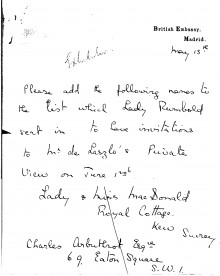 British Embassy,
Madrid.
May 13th
Please add the following names to
the list which Lady Rumbold
sent in to have invitations
to Mr de Laszlo's Private
View on June 1st
Lady & Miss MacDonald
Royal Cottage.
Kew Surrey
Charles Arbuthnot Esqre
69 Eaton Square
S.W.1.